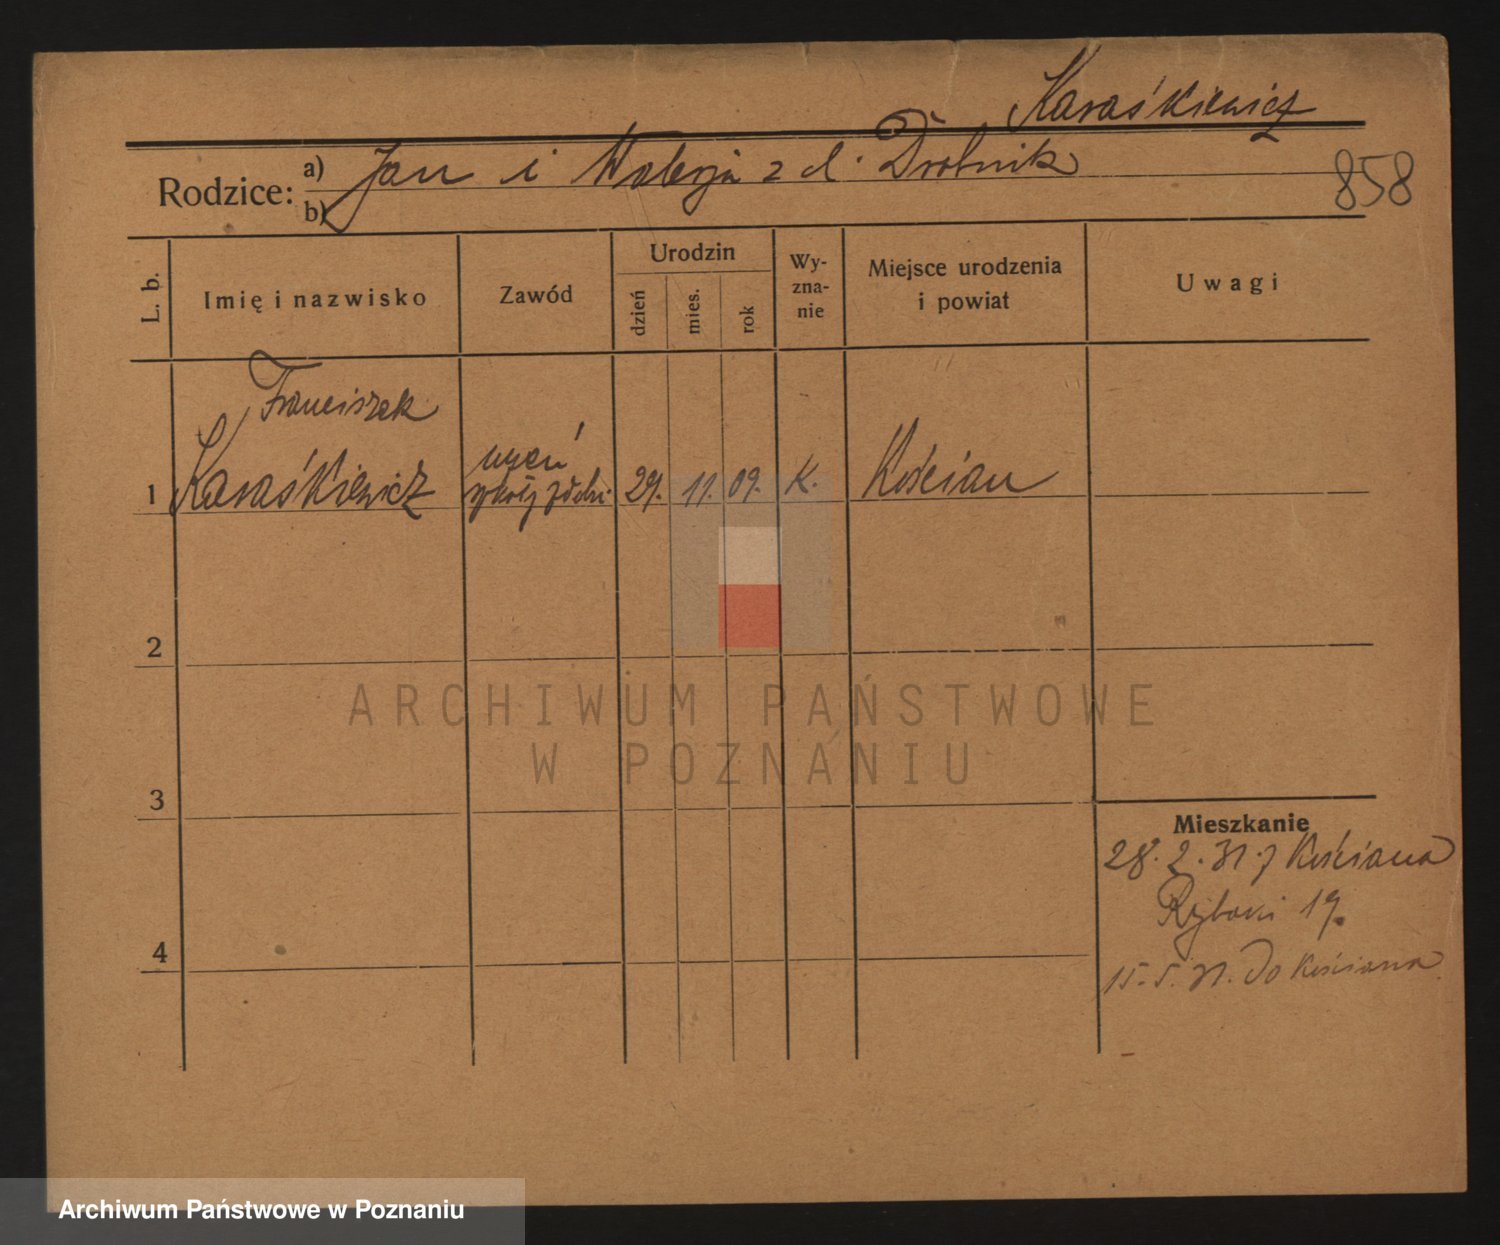 Karaśkiewicz
Rodzice: a) Jan i Walerja z d. Drobnik
b)
858
L. b.
Imię i nazwisko
Zawód
Urodzin
dzień
mies.
rok
Wy-
zna-
nie
Miejsce urodzenia
i powiat
Uwagi
Franciszek
1 Karaśkiewicz
uczeń
szkoły zdobn.
29. 11. 09. K. Kościan
2
3
4
ARCHIWUM PAŃSTWOWE
W POZNANIU
Mieszkanie
28. 2. 31. z Kościana
Rybaki 19.
15. 5. 31. do Kościana
Archiwum Państwowe w Poznaniu